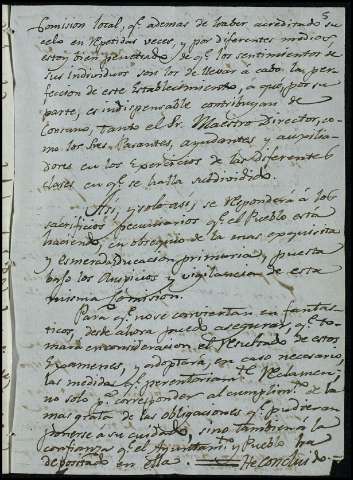 Comision local, q.e ademas de haber acreditado su
celo en repetidas veces, y por diferentes medios
estoy bien penetrado de q.e los sentimientos de
sus individuos son los de llevar á cabo la per-
feccion de este Establecimiento, a que, por su
parte, es indispensable contribuyan de
Consuno, tanto el Sr. Maestro Director, co-
mo los Sres. Pasantes, ayudantes y auxilia-
dores en los Exercicios de las diferentes
clases en q.e se halla subdividido.
Asi, y solo asi, se responderá á los
sacrificios pecuniarios q.e el Pueblo está
haciendo, en obsequio de la mas exquisita
y esmerada educacion primaria, y puesta
bajo los Auspicios y vigilancia de esta
misma Comision.
Para q.e no se conviertan en fantas-
ticos, desde ahora puedo asegurar, q.e to-
mará en consideracion el resultado de estos
Examenes, y adoptará, en caso necesario,
las medidas q.e perentoriam.te reclamen,
no solo p.a corresponder al cumplim.to de la
mas grata de las obligaciones q.e pudieran
ponerse a su cuidado, sino tambien a la
confianza q.e el Ayuntam.to y Pueblo ha
depositado en ella. He concluido.